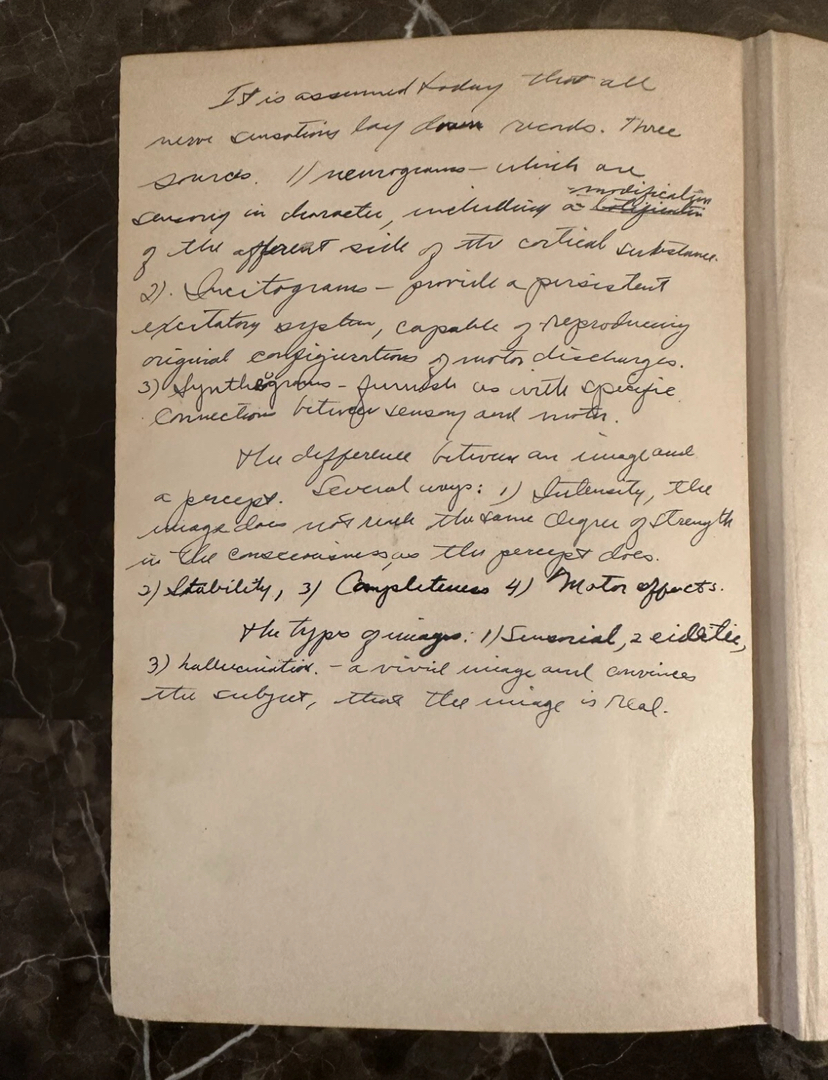 It is assumed today that all
nerve sensations lay down records. Three
sources. 1) neurograms – which are
sensory in character, including a modification
of the afferent side of the cortical substance.
2). Incitograms – provide a persistent
excitatory system, capable of reproducing
original configurations of motor discharges.
3) Synthograms – furnish us with specific
connections between sensory and motor.
The difference between an image and
a percept. Several ways: 1) Intensity, the
image does not reach the same degree of strength
in the consciousness, as the percept does.
2) Stability, 3) Completeness 4) Motor effects.
The types of images: 1) Sensorial, 2 eidetic,
3) hallucination. – a vivid image and convinces
the subject, that the image is real.